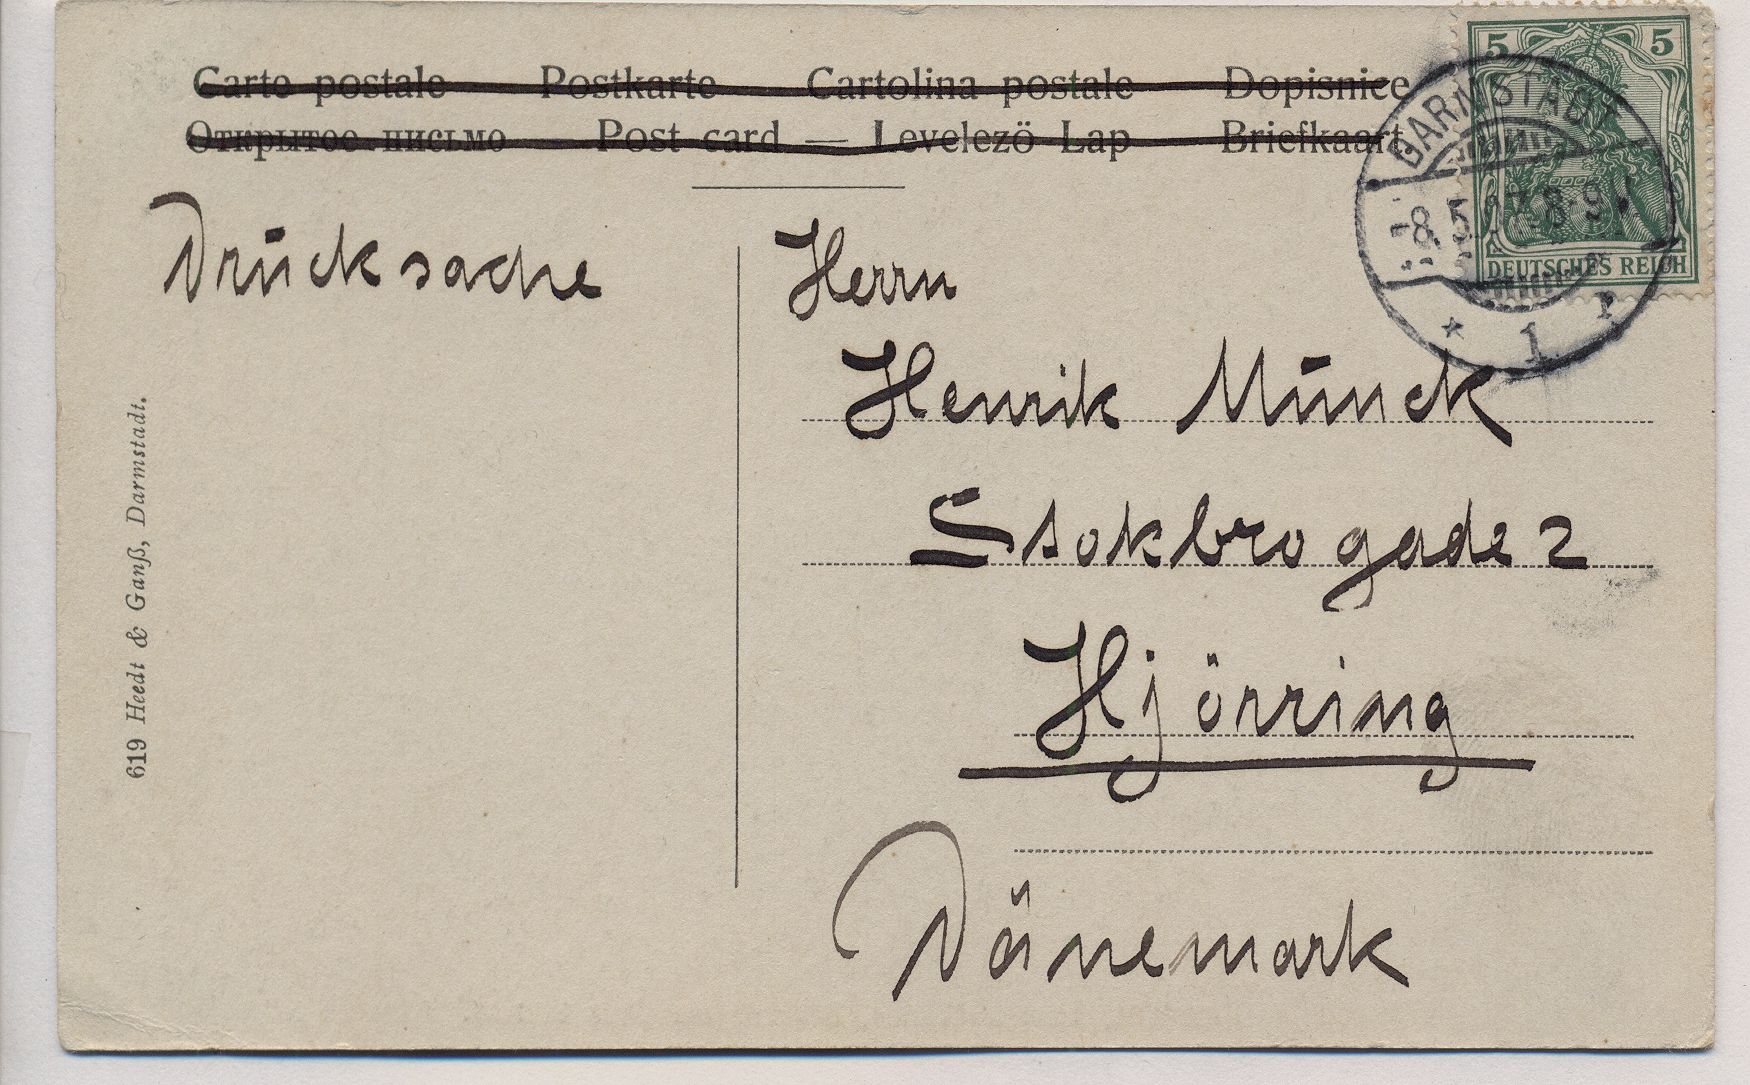 Carte postale Postkarte Cartolina postale Dopisnice
Открытое письмо Post card — Levelező Lap Briefkaart.
5 5
DEUTSCHES REICH
DARMSTADT
8.5. 8-9
* 1
Drucksache
Herrn
Henrik Munck
Stokbrogade 2
Hjörring
Dänemark
619 Heedt & Ganß, Darmstadt.